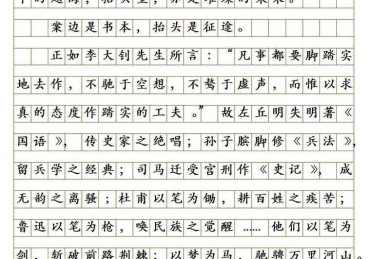 案边是书本，抬头是征途。
正如李大钊先生所言：“凡事都要脚踏实
地去作，不驰于空想，不骛于虚声，而惟以求
真的态度作踏实的工夫。”故左丘明失明著《
国语》，传史家之绝唱；孙子膑脚修《兵法》，
留兵学之经典；司马迁受宫刑作《史记》，成
无韵之离骚；杜甫以笔为锄，耕百姓之疾苦；
鲁迅以笔为枪，唤民族之觉醒……他们以笔为
剑，斩破前路荆棘；以梦为马，驰骋万里河山。